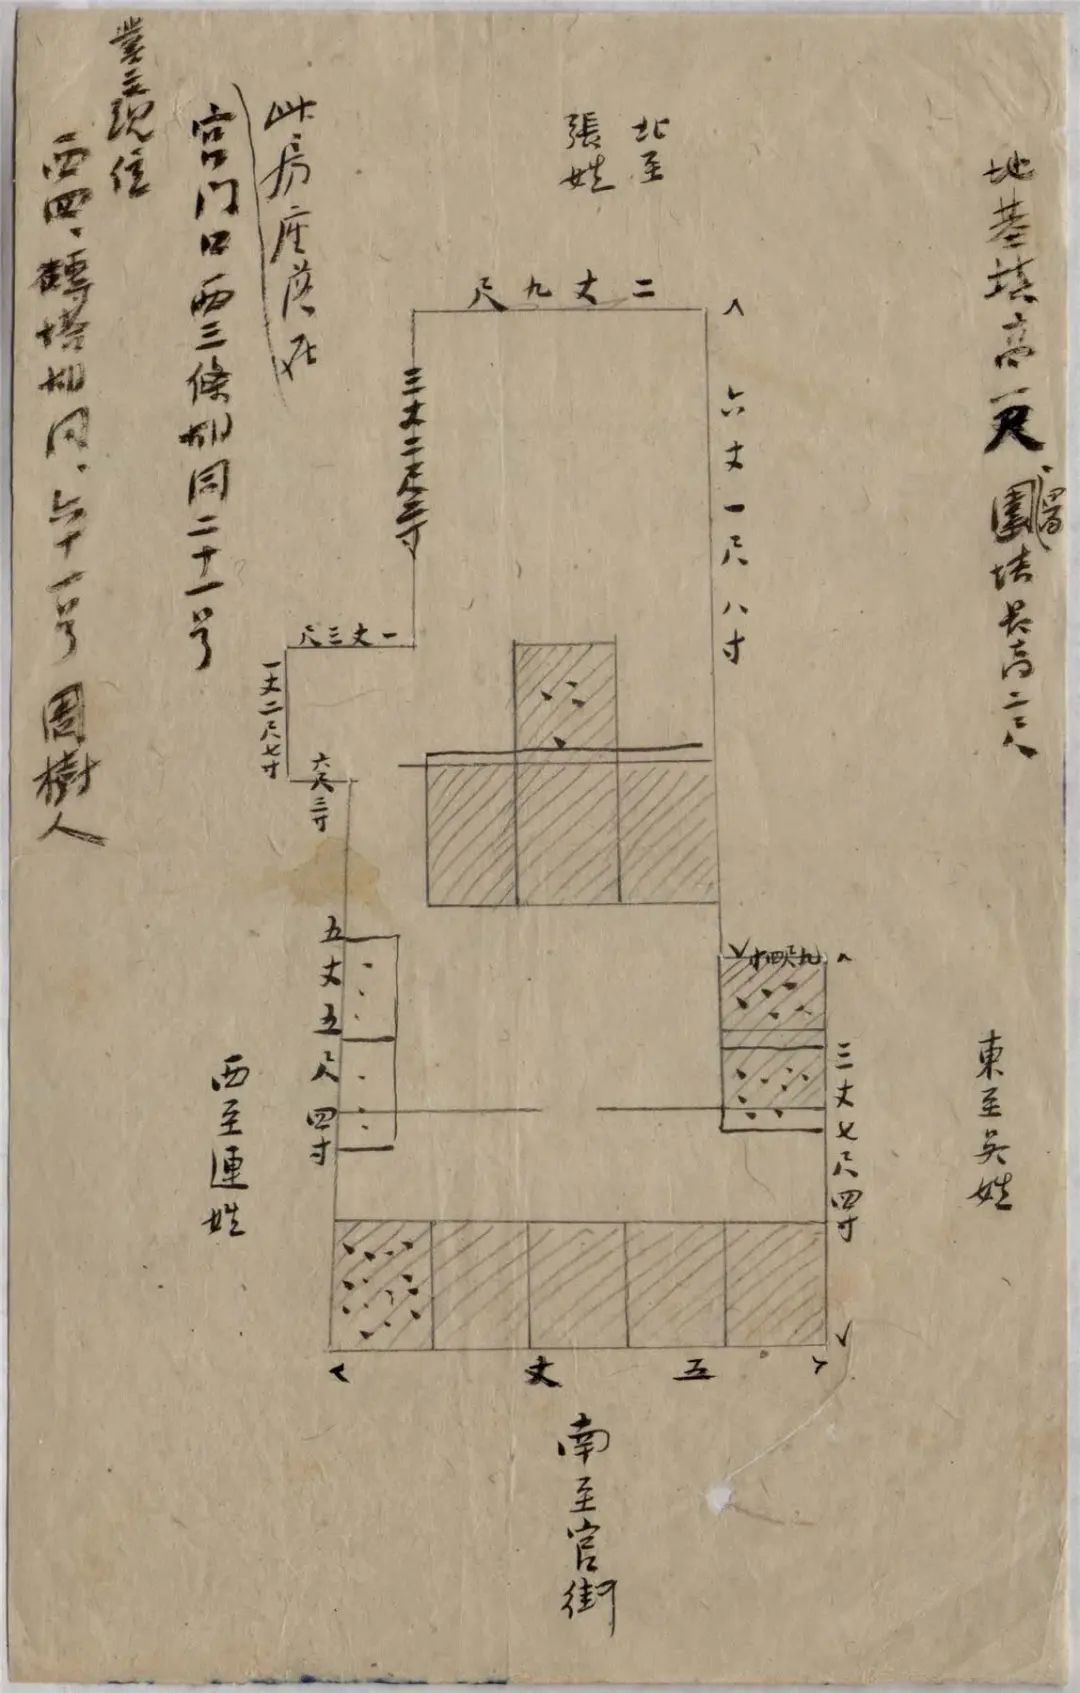 地基填高一尺
圍墻長高二尺
北至
張姓
二丈九尺
六丈一尺八寸
三丈二尺三寸
一丈三尺
一丈二尺七寸
六尺三寸
五丈五尺四寸
九尺四寸
三丈七尺四寸
五丈
東至吳姓
西至連姓
南至官街
此房座落在
宮门口西三條胡同二十一号
業主現住
西四、磚塔胡同、六十一号 周樹人